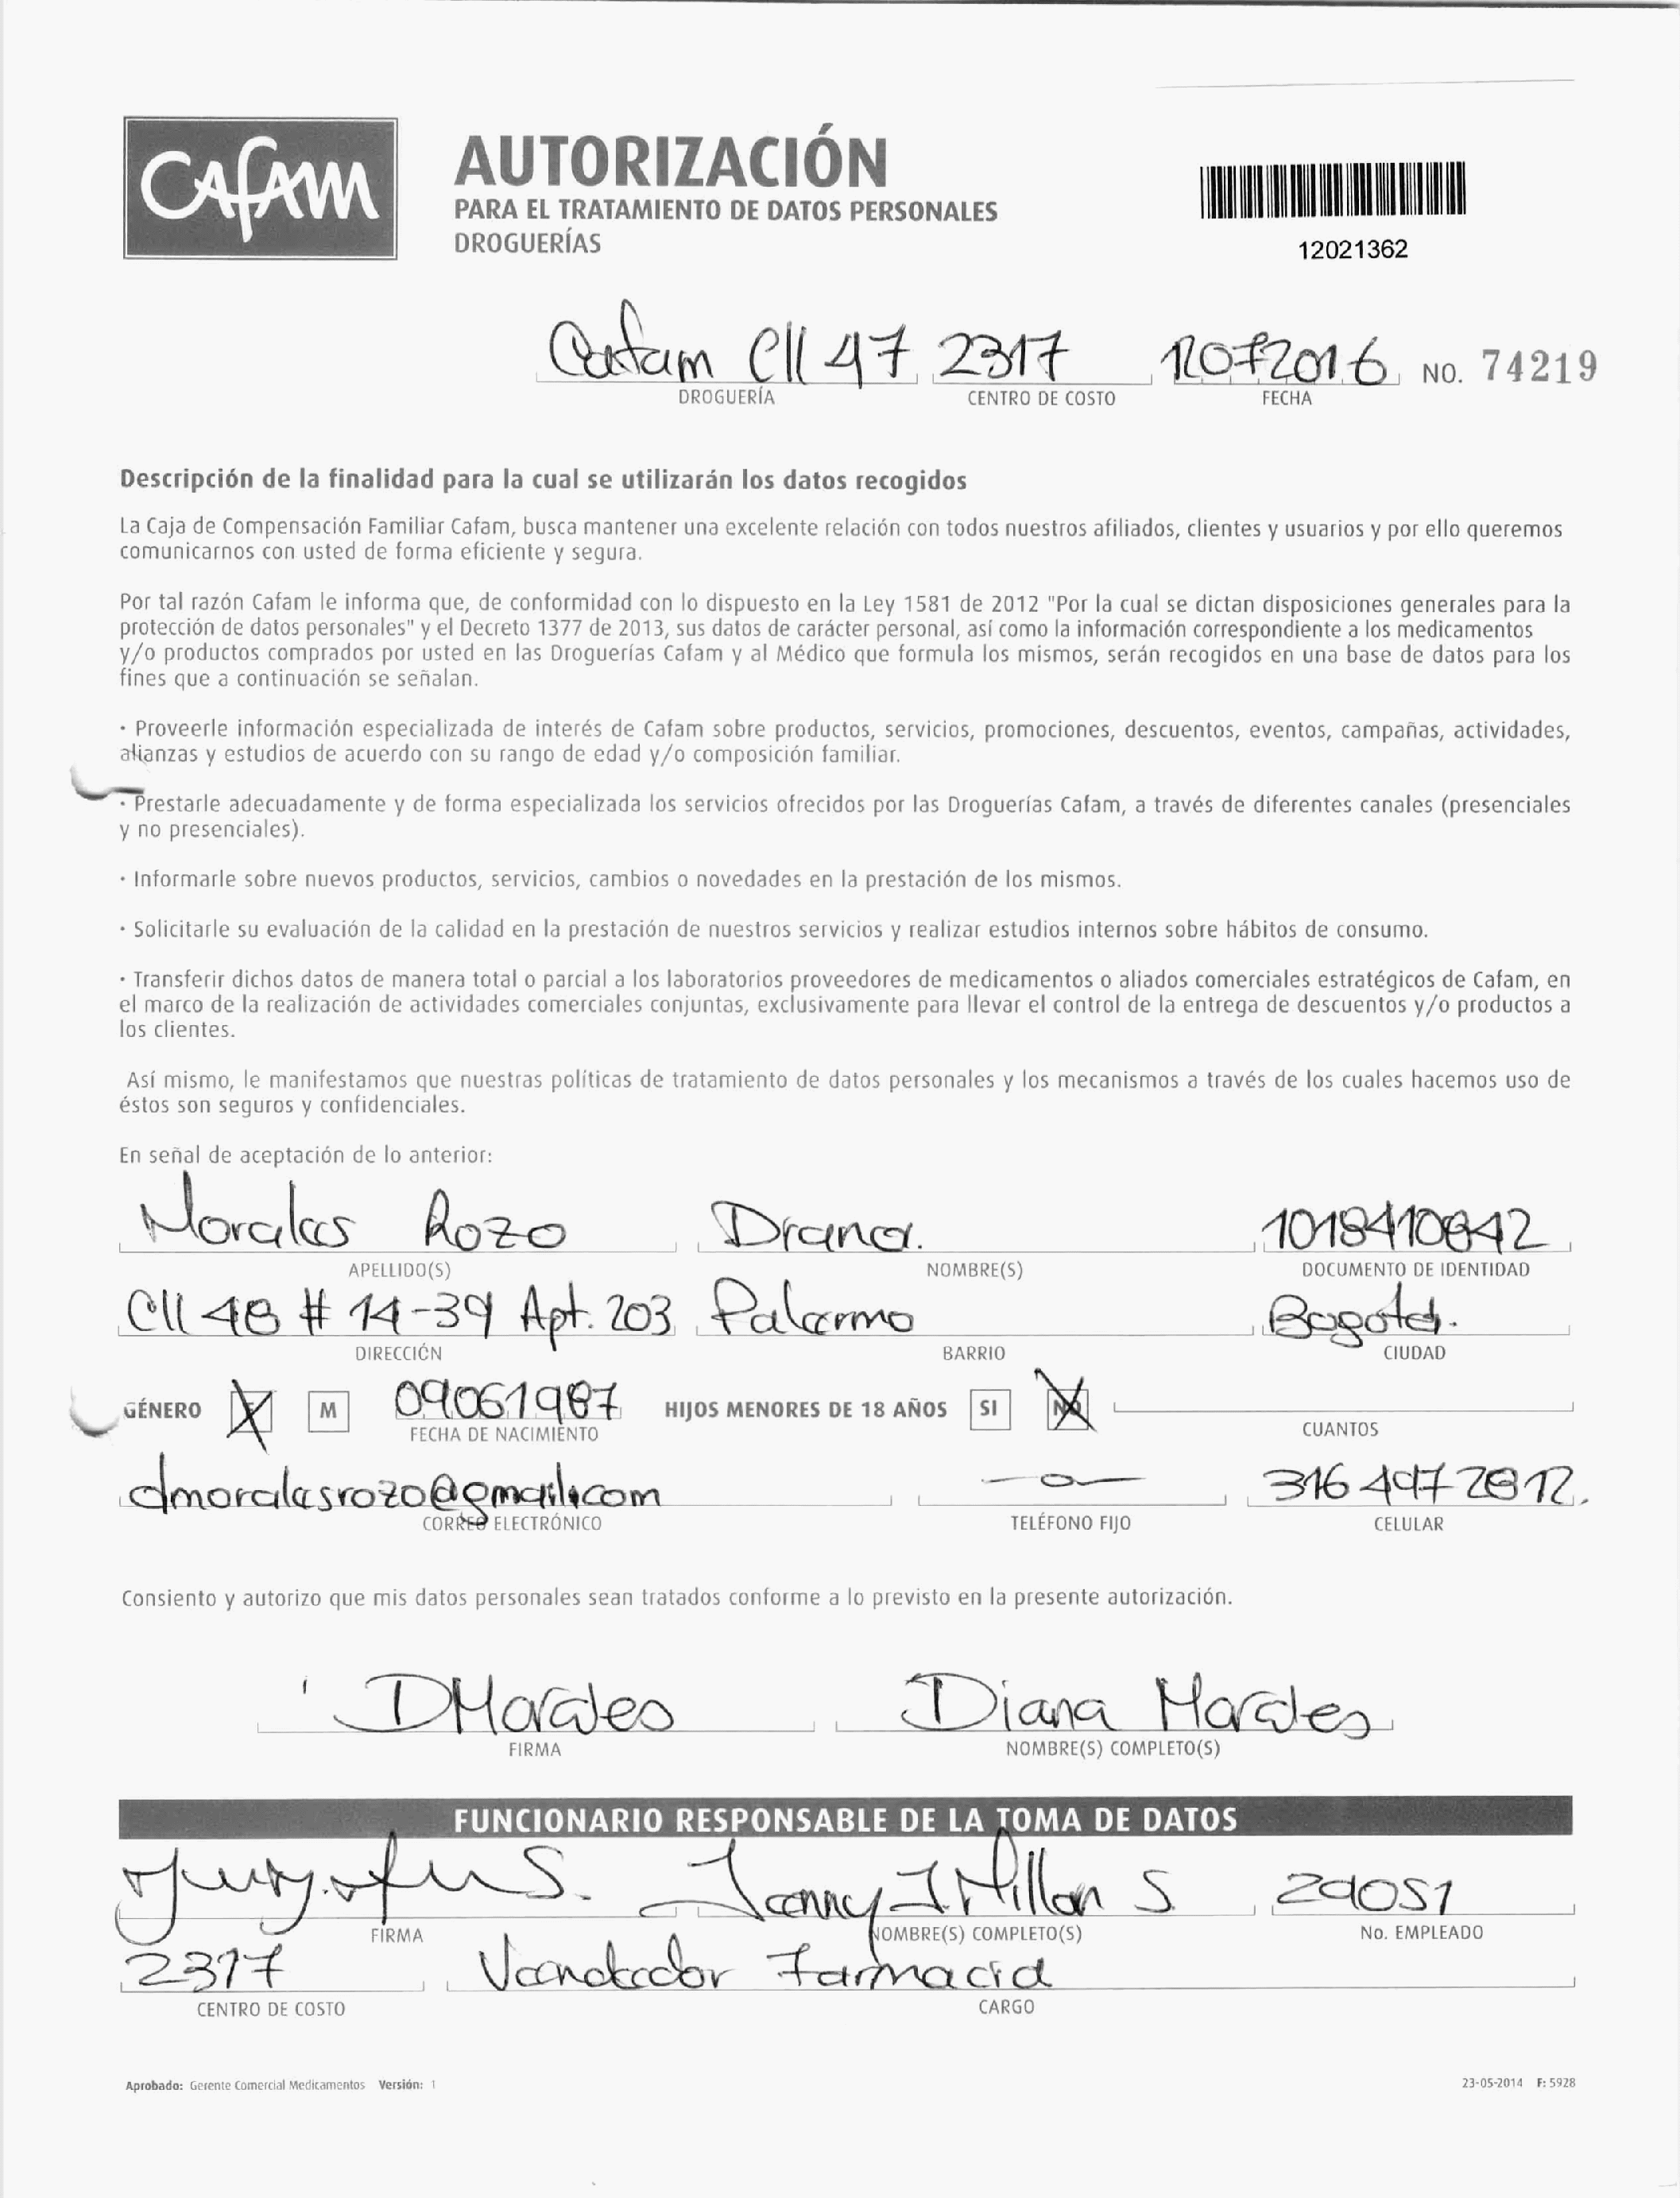 CAFAM
AUTORIZACIÓN
PARA EL TRATAMIENTO DE DATOS PERSONALES
DROGUERÍAS
12021362
Cafam Cll 47 2317 12072016 NO. 74219
DROGUERÍA CENTRO DE COSTO FECHA
Descripción de la finalidad para la cual se utilizarán los datos recogidos
La Caja de Compensación Familiar Cafam, busca mantener una excelente relación con todos nuestros afiliados, clientes y usuarios y por ello queremos
comunicarnos con usted de forma eficiente y segura.
Por tal razón Cafam le informa que, de conformidad con lo dispuesto en la Ley 1581 de 2012 "Por la cual se dictan disposiciones generales para la
protección de datos personales" y el Decreto 1377 de 2013, sus datos de carácter personal, así como la información correspondiente a los medicamentos
y/o productos comprados por usted en las Droguerías Cafam y al Médico que formula los mismos, serán recogidos en una base de datos para los
fines que a continuación se señalan.
· Proveerle información especializada de interés de Cafam sobre productos, servicios, promociones, descuentos, eventos, campañas, actividades,
alianzas y estudios de acuerdo con su rango de edad y/o composición familiar.
· Prestarle adecuadamente y de forma especializada los servicios ofrecidos por las Droguerías Cafam, a través de diferentes canales (presenciales
y no presenciales).
· Informarle sobre nuevos productos, servicios, cambios o novedades en la prestación de los mismos.
· Solicitarle su evaluación de la calidad en la prestación de nuestros servicios y realizar estudios internos sobre hábitos de consumo.
· Transferir dichos datos de manera total o parcial a los laboratorios proveedores de medicamentos o aliados comerciales estratégicos de Cafam, en
el marco de la realización de actividades comerciales conjuntas, exclusivamente para llevar el control de la entrega de descuentos y/o productos a
los clientes.
Así mismo, le manifestamos que nuestras políticas de tratamiento de datos personales y los mecanismos a través de los cuales hacemos uso de
éstos son seguros y confidenciales.
En señal de aceptación de lo anterior:
Morales Rozo Diana. 1018410842
APELLIDO(S) NOMBRE(S) DOCUMENTO DE IDENTIDAD
Cll 48 # 14-39 Apt. 203 Palermo Bogotá.
DIRECCIÓN BARRIO CIUDAD
GÉNERO F M 09061987 HIJOS MENORES DE 18 AÑOS SI NO
FECHA DE NACIMIENTO CUANTOS
dmoralesrozo@gmail.com 316 497 2812.
CORREO ELECTRÓNICO TELÉFONO FIJO CELULAR
Consiento y autorizo que mis datos personales sean tratados conforme a lo previsto en la presente autorización.
DMorales Diana Morales
FIRMA NOMBRE(S) COMPLETO(S)
FUNCIONARIO RESPONSABLE DE LA TOMA DE DATOS
Jenny J Millan S 29051
FIRMA NOMBRE(S) COMPLETO(S) No. EMPLEADO
2317 Vendedor Farmacia
CENTRO DE COSTO CARGO
Aprobado: Gerente Comercial Medicamentos Versión: 1 23-05-2014 F: 5928